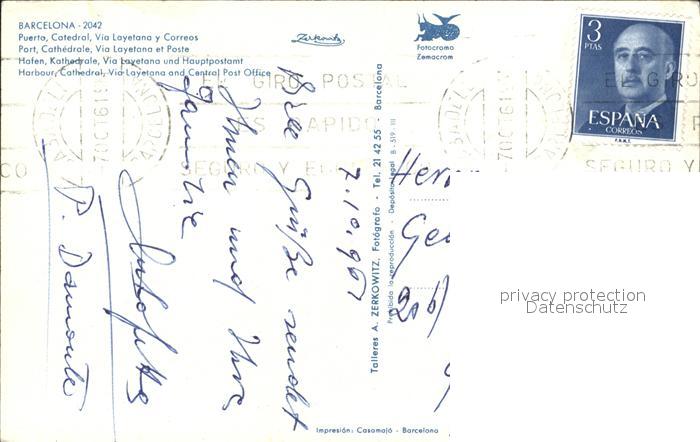 BARCELONA - 2042
Puerto, Catedral, Via Layetana y Correos
Port, Cathédrale, Via Layetana et Poste
Hafen, Kathedrale, Via Layetana und Hauptpostamt
Harbour, Cathedral, Via Layetana and Central Post Office
Zerkowitz
Fotocromo
Zemacrom
3
PTAS
ESPAÑA
CORREOS
F.N.M.T.
EL GIRO POSTAL
ES RAPIDO
SEGURO Y
EL GIRO
ES
SEGURO Y
7.10.967
Viele Grüße sendet
Ihnen und Ihre
Familie
P. Damonte
Talleres A. ZERKOWITZ, Fotógrafo - Tel. 21 42 55 - Barcelona
Prohibida la reproducción - Depósito Legal B - 519 - III
Her
privacy protection
Datenschutz
Impresión: Casamajó - Barcelona